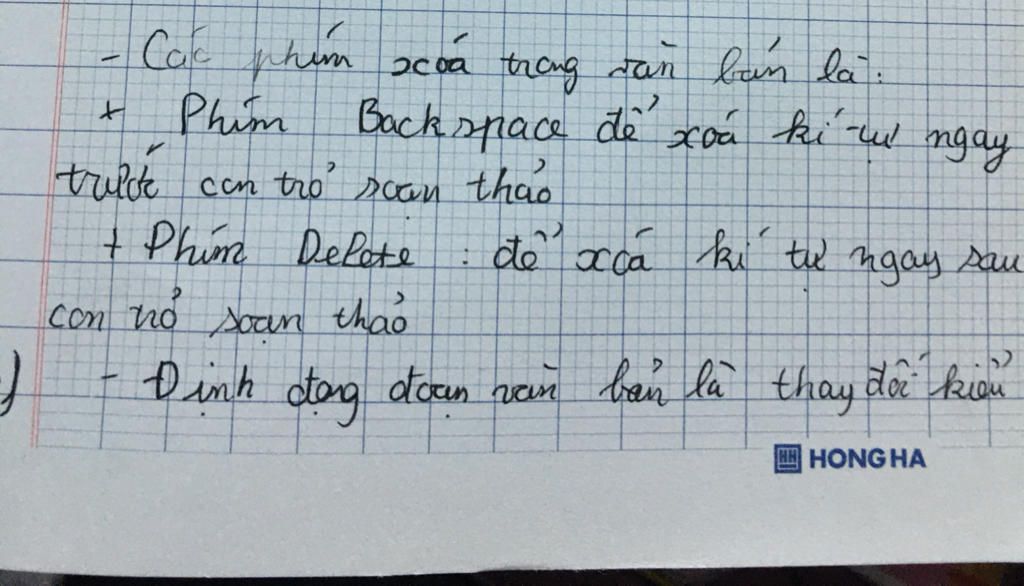 - Các phím xoá trong văn bản là:
+ Phím Backspace để xoá kí tự ngay
trước con trỏ soạn thảo
+ Phím Delete : để xoá kí tự ngay sau
con trỏ soạn thảo
) - Định dạng đoạn văn bản là thay đổi kiểu
HONG HA